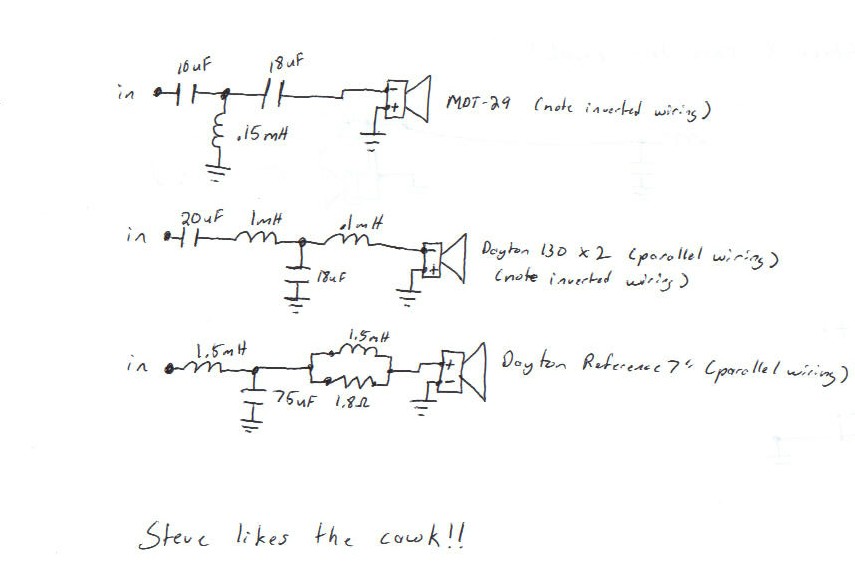 10uF 18uF
in - MDT-29 (note inverted wiring)
+
.15mH
20uF 1mH .1mH
in - Dayton 130 x 2 (parallel wiring)
+ (note inverted wiring)
18uF
1.5mH
1.5mH
in + Dayton Reference 7" (parallel wiring)
-
75uF 1.8Ω
Steve likes the cawk!!